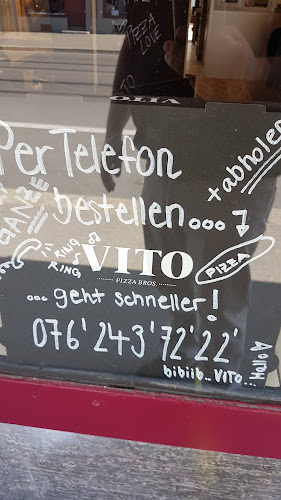 PIZZA
LOVE
TO
VITO
Per Telefon
+ abholen
GANZE
bestellen...
RING
RING
VITO
PIZZA BROS.
PIZZA
... geht schneller!
076'243'72'22'
bibiib.. VITO...
Hallo